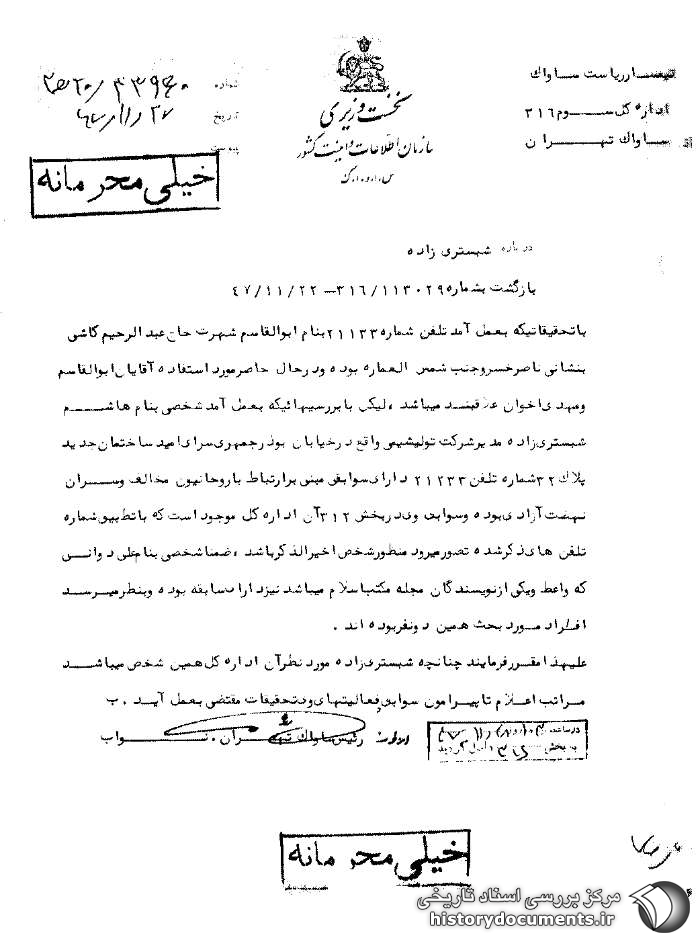 تیمسار ریاست ساواك
اداره کل سوم ۳۱۶
ساواك تهران
نخست وزیری
سازمان اطلاعات و امنیت کشور
س.ا.و.ا.ك
شماره
تاریخ
پیوست
خیلی محرمانه
درباره شبستری زاده
بازگشت بشماره ۳۱۶/۱۱۳۰۲۹ – ۴۷/۱۱/۲۲
باتحقیقاتیکه بعمل آمد تلفن شماره ۲۱۱۳۳ بنام ابوالقاسم شهرت حاج عبدالرحیم کاشی
بنشانی ناصرخسرو جنب شمس العماره بوده و در حال حاضر مورد استفاده آقایان ابوالقاسم
ومهدی اخوان علاقبند میباشد ، لیکن با بررسیهائیکه بعمل آمد شخصی بنام هاشم
شبستری زاده مدیر شرکت تولیشیمی واقع در خیابان بوذرجمهری سرای امید ساختمان جدید
پلاك ۳۲ شماره تلفن ۲۱۲۳۳ دارای سوابقی مبنی بر ارتباط با روحانیون مخالف وسران
نهضت آزادی بوده وسوابق وی در بخش ۳۱۲ آن اداره کل موجود است که باتطبیق شماره
تلفن های ذکر شده تصور میرود منظور شخص اخیرالذکر باشد ، ضمنا شخصی بنام علی دوانی
که واعظ ویکی از نویسندگان مجله مکتب اسلام میباشد نیز دارای سابقه بوده و بنظر میرسد
افراد مورد بحث همین دونفر بوده اند .
علیهذا مقرر فرمایند چنانچه شبستری زاده مورد نظر آن اداره کل همین شخص میباشد
مراتب اعلام تا پیرامون سوابق فعالیتهای وی تحقیقات مقتضی بعمل آید . ب
رئیس ساواك تهران . نواب
در ساعت
به بخش ۳۱۶ واصل گردید
خیلی محرمانه
مرکز بررسی اسناد تاریخی
historydocuments.ir